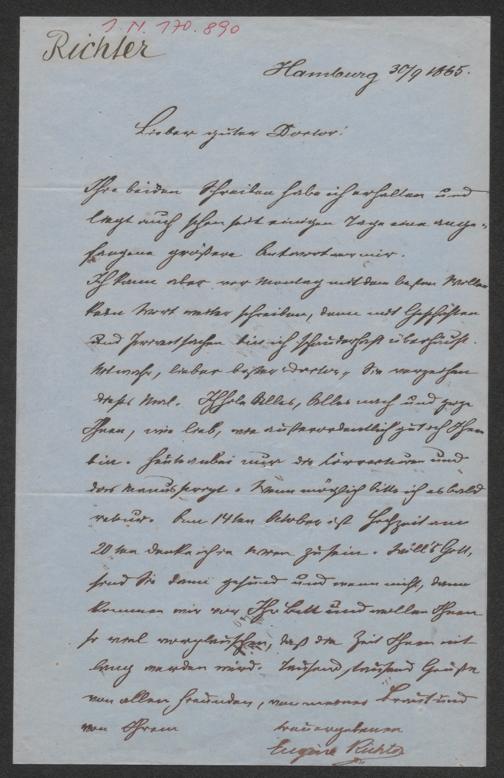 I. N. 170.890
Richter
Hamburg 30/9 1865.
Lieber guter Doctor!
Ihre beiden Schreiben habe ich erhalten und
liegt auch schon seit einigen Tagen eine ange-
fangene größere Antwort vor mir.
Ich kann aber vor Montag mit dem besten Willen
kein Wort weiter schreiben, denn mit Geschäften
und Privatsachen bin ich schauderhaft überhäuft.
Nicht wahr, lieber bester Doctor, Sie verzeihen
dieses Mal. Ich hole Alles, Alles nach und zeige
Ihnen, wie lieb, wie außerordentlich gut ich Ihnen
bin. Heute anbei nur die Correcturen und
das Manuscript. Wenn möglich bitte ich es bald
retour. Am 14ten October ist Hochzeit am
20ten denke ich in Wien zu sein. Will's Gott,
sind Sie dann gesund und wenn nicht, dann
kommen wir vor Ihr Bett und wollen Ihnen
so viel vorplauschen, daß die Zeit Ihnen nit
lang werden wird. Tausend, tausend Grüße
von allen Freunden, von meiner Braut und
von Ihrem
treuergebenen
Eugène Richter